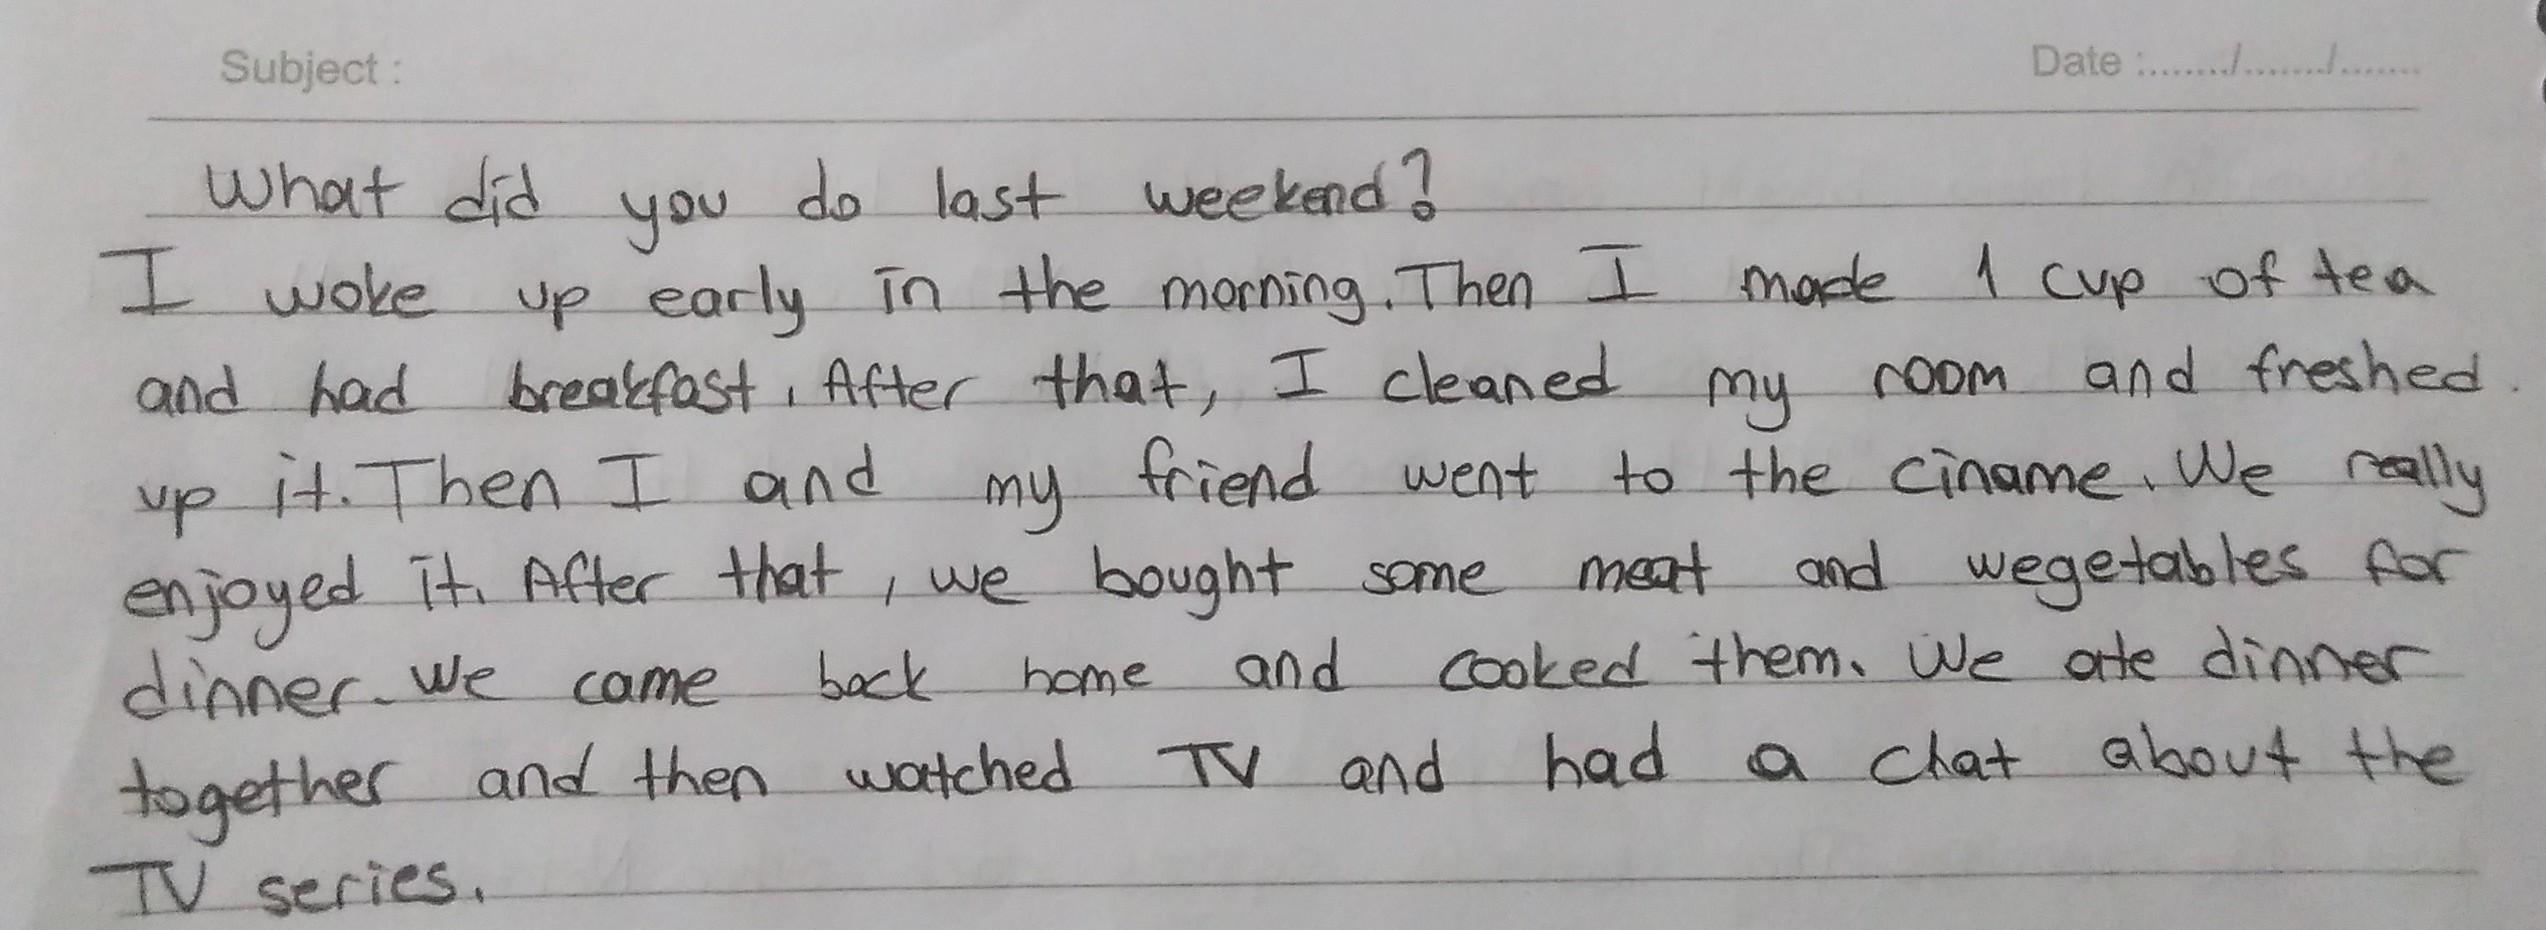 Subject :
Date :......../......../.......
What did you do last weekend?
I woke up early in the morning. Then I made 1 cup of tea
and had breakfast. After that, I cleaned my room and freshed
up it. Then I and my friend went to the ciname. We really
enjoyed it. After that, we bought some meat and wegetables for
dinner. We came back home and cooked them. We ate dinner
together and then watched TV and had a chat about the
TV series.